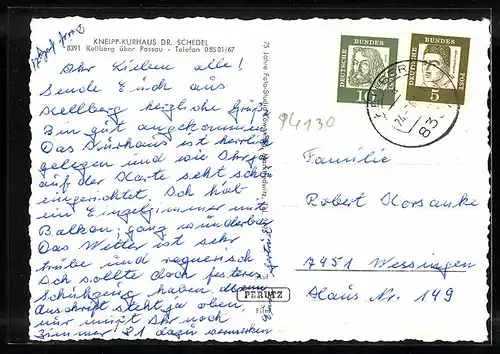 KNEIPP-KURHAUS DR. SCHEDEL
8391 Kellberg über Passau - Telefon 08501/67
Ihr Lieben alle!
Sende Euch aus
Kellberg herzliche Grüße
Bin gut angekommen
Das Kurhaus ist herrlich
gelegen und wie Ihr
auf der Karte seht schön
eingerichtet. Ich hab
ein Einzelzimmer mit
Balkon, ganz wunderbar
Das Wetter ist sehr
trübe und regnerisch
Ich sollte doch festeres
Schuhzeug haben, meine
Anschrift steht ja oben,
nur müßt Ihr noch
Zimmer 21 dazu vermerken
75 Jahre Foto-Studio
PERUTZ
DEUTSCHE BUNDESPOST
10
DEUTSCHE BUNDESPOST
5
83
94130
Familie
Robert Korsanke
7451 Wessingen
Haus Nr. 149